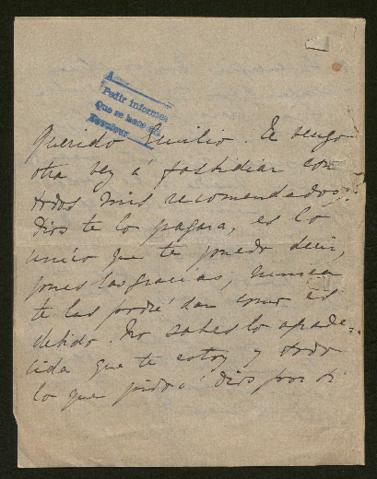 A
Pedir informes
Que se hace
Resolver
Querido Emilio. Te vengo
otra vez á fastidiar con
todos mis recomendados.
Dios te lo pagara, es lo
unico que te puedo decir,
pues las gracias, nunca
te las podré dar como es
debido. No sabes lo agrade-
cida que te estoy y todo
lo que pido á Dios por ti